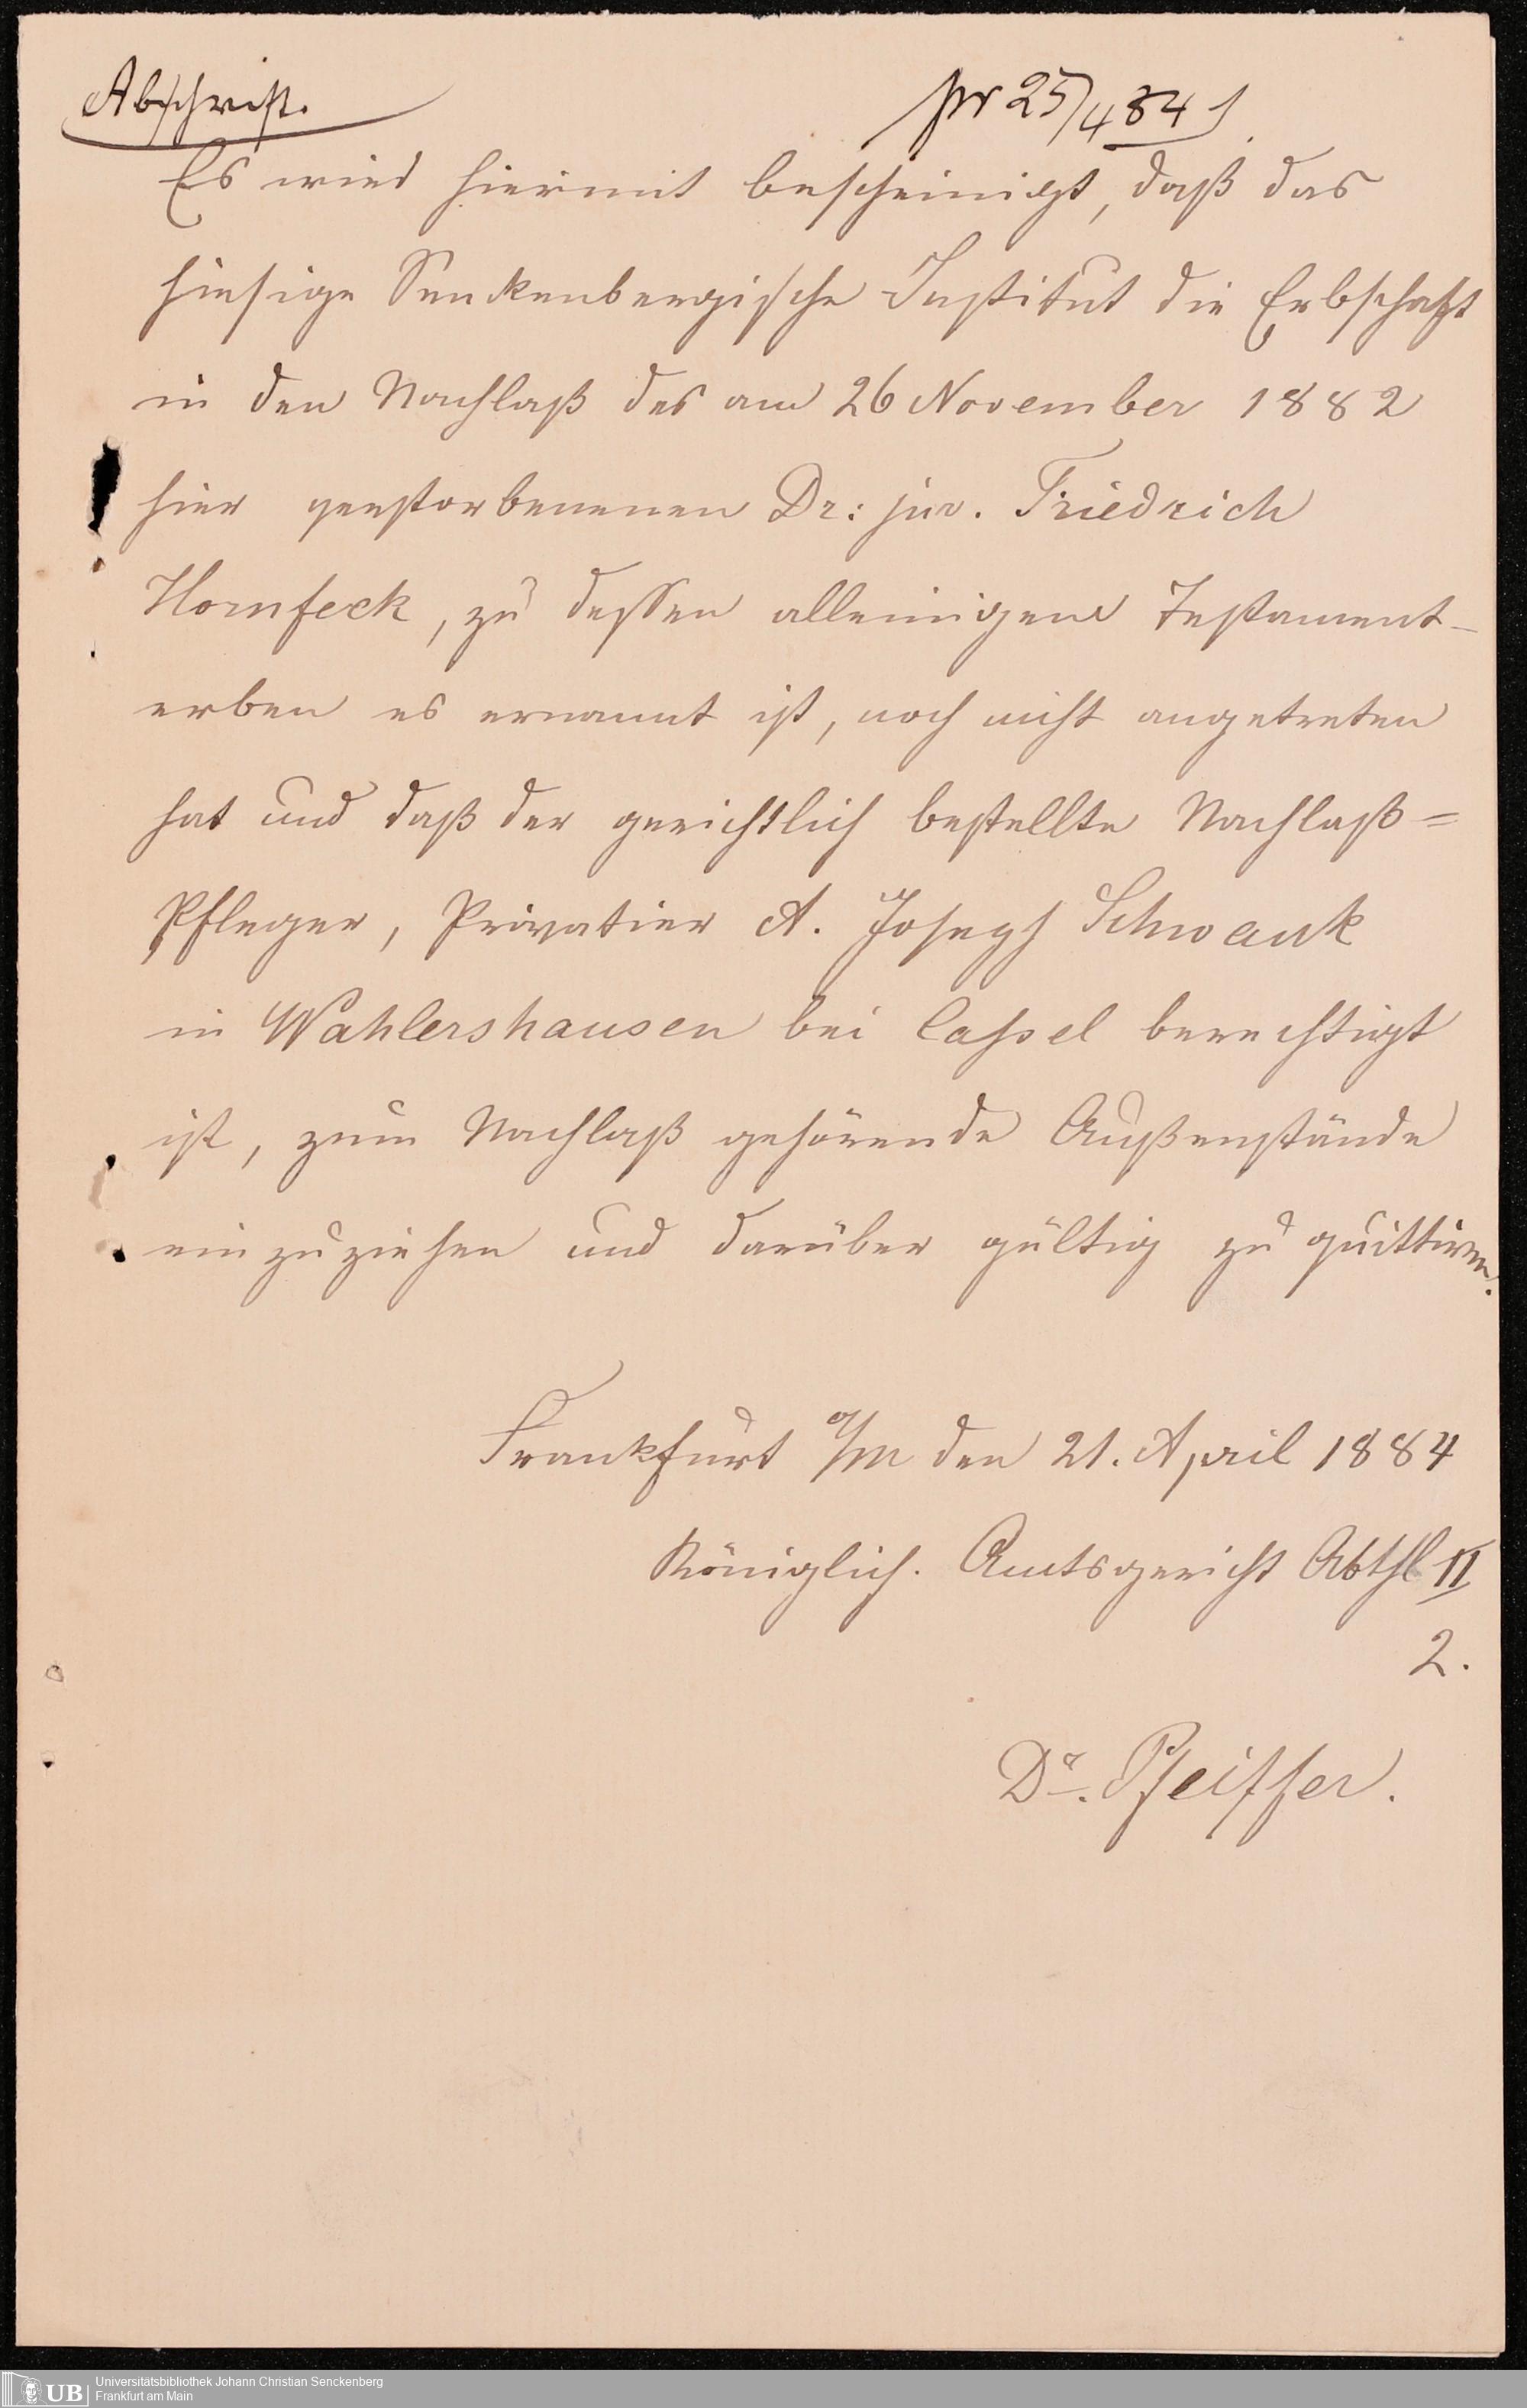 Abschrift.
pr 25/4 84
Es wird hiermit bescheinigt, daß das
hiesige Senckenbergische Institut die Erbschaft
in den Nachlaß des am 26 November 1882
hier verstorbenenen Dr: jur. Friedrich
Hornfeck, zu dessen alleinigen Testament-
erben es ernannt ist, noch nicht angetreten
hat und daß der gerichtlich bestellte Nachlaß=
Pfleger, Privatier A. Joseph Schwank
in Wahlershausen bei Cassel berechtigt
ist, zum Nachlaß gehörende Außenstände
einzuziehen und darüber gültig zu quittiren.
Frankfurt a/M den 21. April 1884
Königlich. Amtsgericht Abthl II
2.
Dr. Pfeiffer.
UB Universitätsbibliothek Johann Christian Senckenberg
Frankfurt am Main